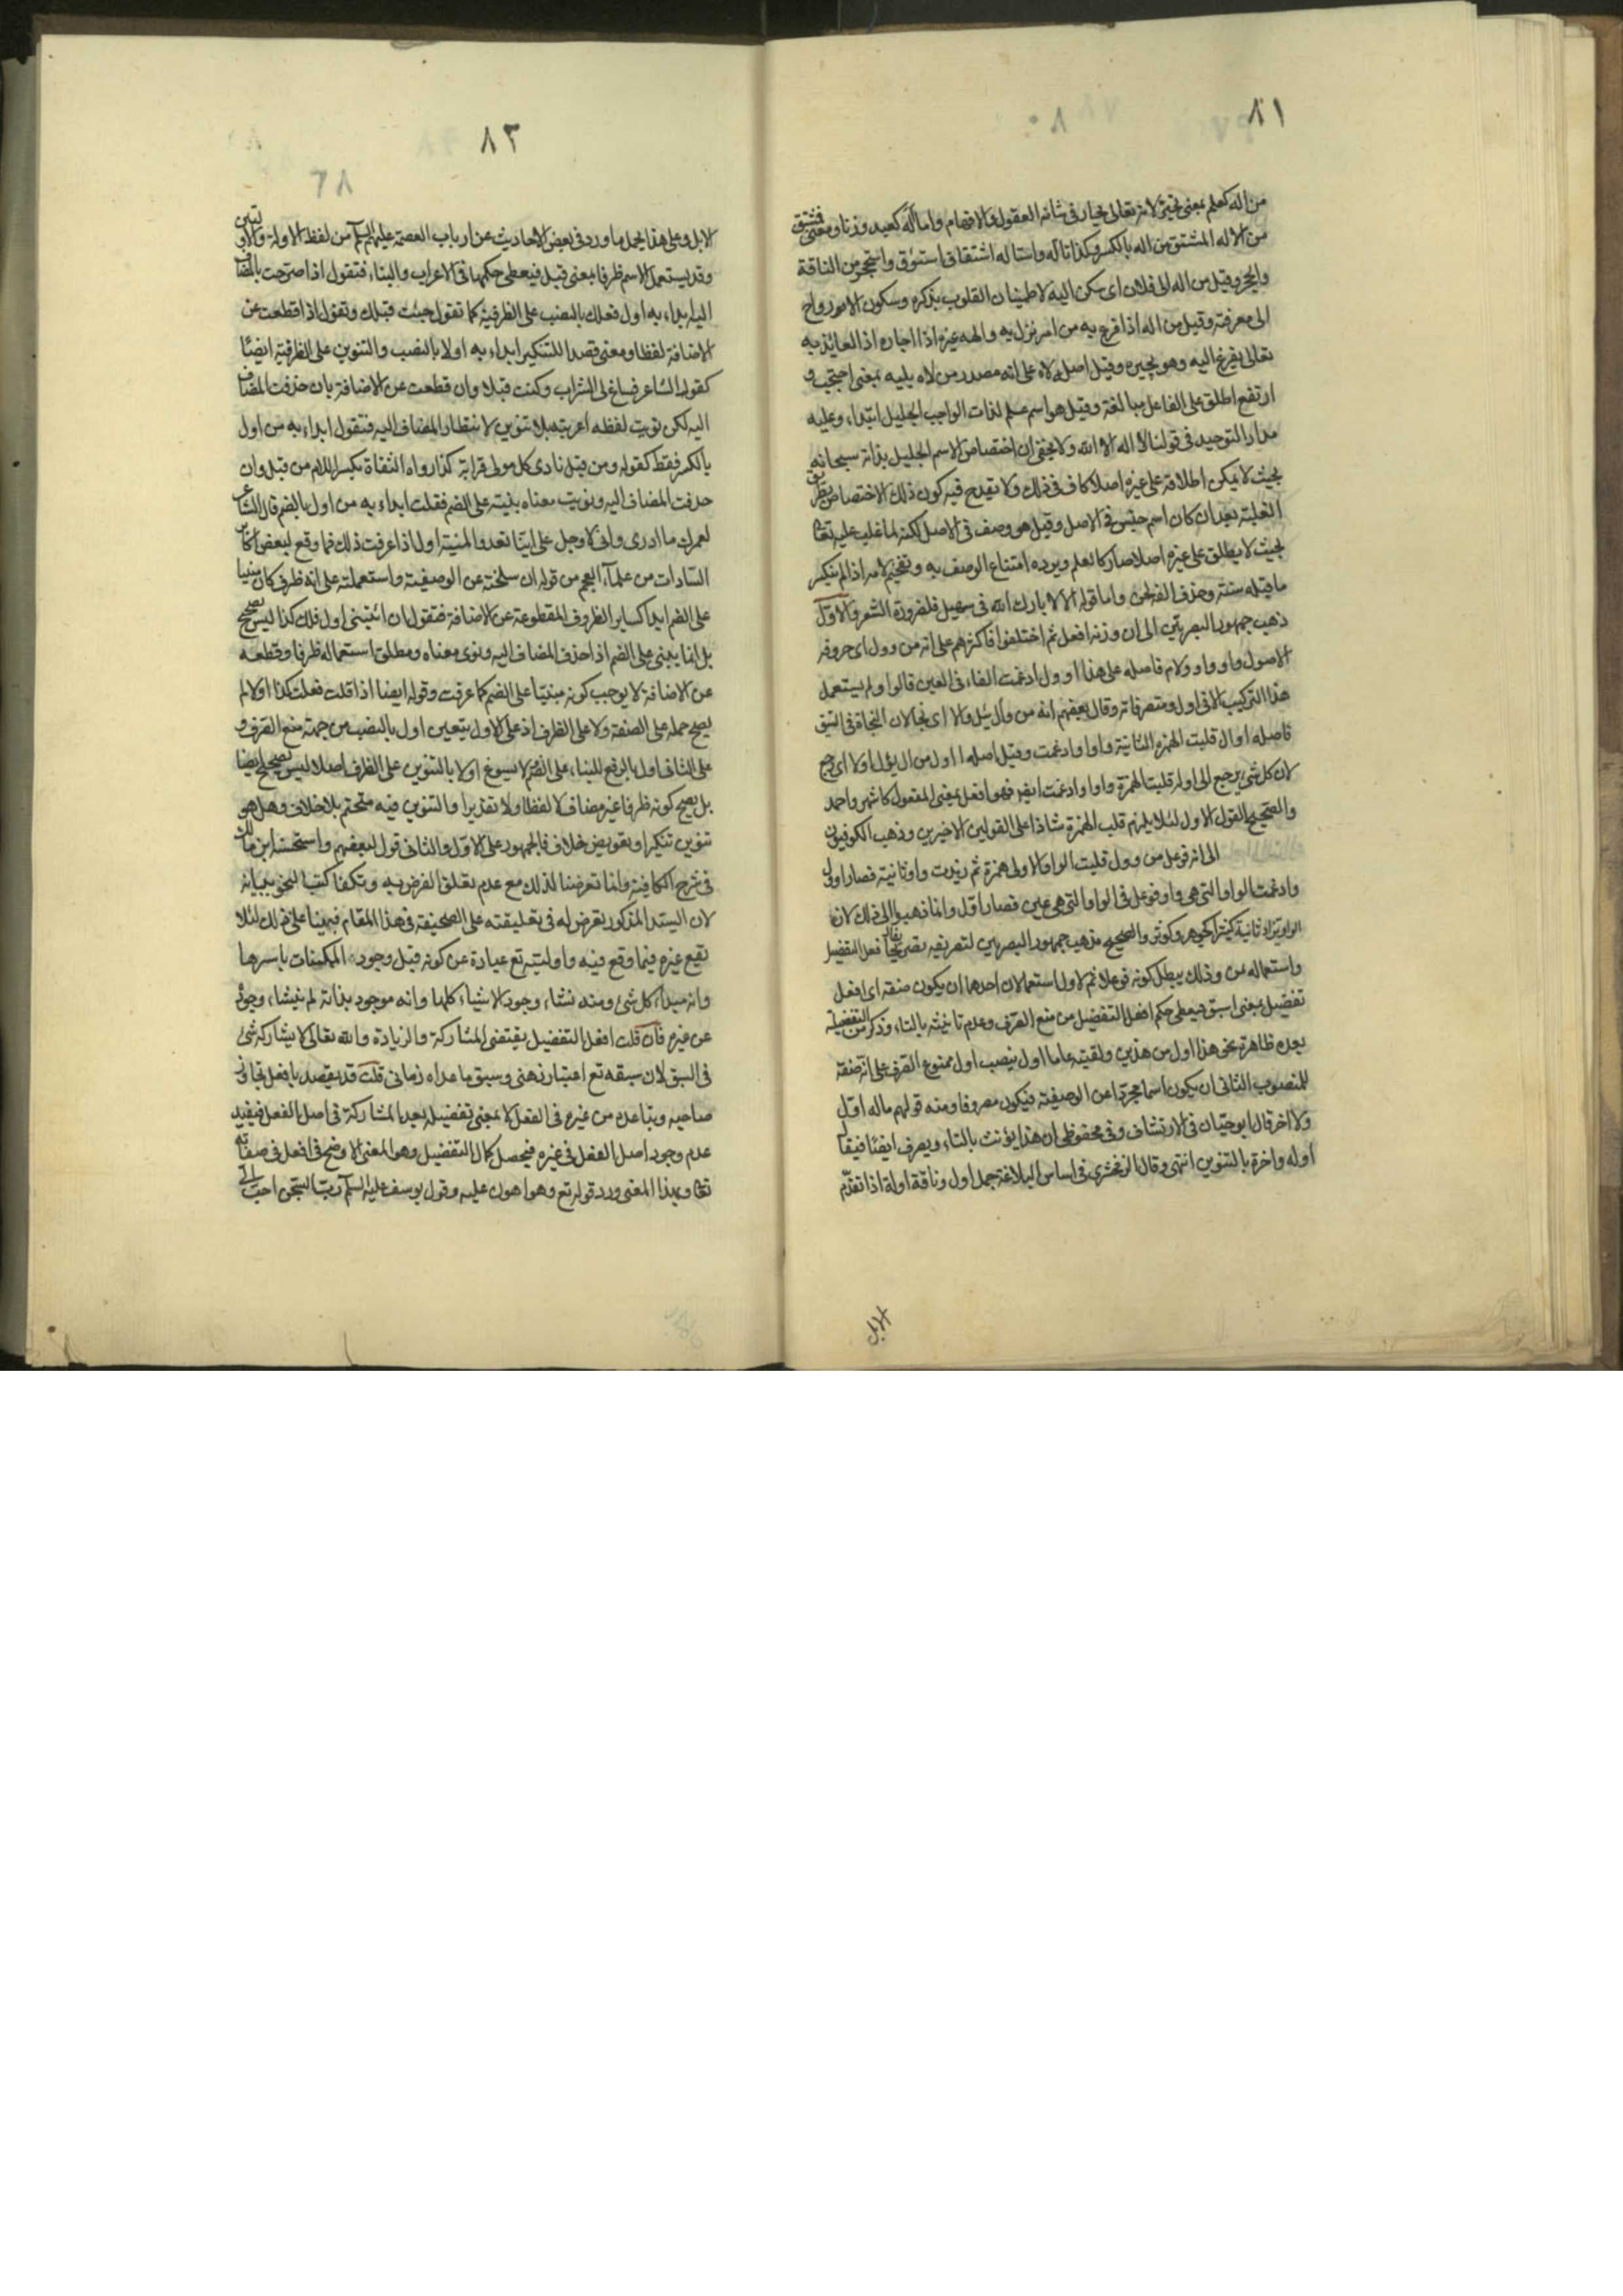 ٨١
من اله كعلم بمعنى تحيّر لانه تعالى يحار فى شانه العقول والافهام واما اله كعبد وزنا ومعنى فمشتق
من الاله المشتق من اله بالكسر وكذا تاله واستاله اشتقاق استنوق واستحجر من الناقة
والحجر وقيل من اله الى فلان اى سكن اليه لاطمينان القلوب بذكره وسكون الارواح
الى معرفته وقيل من اله اذا فزع به من امر نزل به والهه غيره اذا اجاره اذ العائذ به
تعالى يفزع اليه وهو يجيره وقيل اصله لاه على انه مصدر من لاه يليه بمعنى احتجب و
ارتفع اطلق على الفاعل مبالغة وقيل هو اسم علم لذات الواجب الجليل ابتداء وعليه
مدار التوحيد فى قولنا لا اله الا الله ولا يخفى ان اختصاص الاسم الجليل بذاته سبحانه
بحيث لا يمكن اطلاقه على غيره اصلا كاف فى ذلك ولا يقدح فيه كون ذلك الاختصاص بطريق
الغلبة بعد ان كان اسم جنس فى الاصل وقيل هو وصف فى الاصل لكنه لما غلب عليه تعالى
بحيث لا يطلق على غيره اصلا صار كالعلم ويرده امتناع الوصف به وتفخيم لامه اذا لم ينكسر
ما قبله سنة وحذف الفه لحن واما قوله الا لا بارك الله فى سهيل فلضرورة الشعر والاول
ذهب جمهور البصريين الى ان وزنه افعل ثم اختلفوا فاكثرهم على انه من وول اى حروفه
الاصول واو واو ولام فاصله على هذا اوول ادغمت الفاء فى العين قالوا ولم يستعمل
هذا التركيب الا فى اول ومتصرفاته وقال بعضهم انه من وأل يئل وألا اى نجا لان النجاة فى السبق
فاصله اوال قلبت الهمزة الثانية واوا وادغمت وقيل اصله ااول من ال يؤل اولا اى رجع
لان كل شئ يرجع الى اوله قلبت الهمزة واوا وادغمت ايض فهو افعل بمعنى المفعول كاشهر واحمد
والصحيح القول الاول لئلا يلزم قلب الهمزة شاذا على القولين الاخيرين وذهب الكوفيون
الى انه فوعل من وول قلبت الواو الاولى همزة ثم زيدت واو ثانية فصار اوول
وادغمت الواو التى هى واو فوعل فى الواو التى هى عين فصار اوّل وانما ذهبوا الى ذلك لان
الواو تزاد ثانية كثيرا كجوهر وكوثر والصحيح مذهب جمهور البصريين لتصريفه تصريف افعل التفضيل
واستعماله بمن وذلك يبطل كونه فوعلا ثم لاول استعمالان احدهما ان يكون صفة اى افعل
تفضيل بمعنى اسبق فيعطى حكم افعل التفضيل من منع الصرف وعدم تانيثه بالتاء وذكر من التفضيلية
بعده ظاهرة نحو هذا اول من هذين ولقيته عاما اول بنصب اول ممنوع الصرف على انه صفة
للمنصوب الثانى ان يكون اسما مجردا عن الوصفية فيكون مصروفا ومنه قولهم ماله اوّل
ولا اخر قال ابو حيّان فى الارتشاف وفى محفوظى ان هذا يؤنث بالتاء ويصرف ايضا فيقال
اولة واخرة بالتنوين انتهى وقال الزمخشرى فى اساس البلاغة جمل اول وناقة اولة اذا تقدّم
الابل
٨٢
الابل وعلى هذا يحمل ما ورد فى بعض الاحاديث عن ارباب العصمة عليهم السلم من لفظ الاولة
وقد يستعمل الاسم ظرفا بمعنى قبل فيعطى حكمها فى الاعراب والبناء فتقول اذا صرحت بالمضاف
اليه ابداء به اول فعلك بالنصب على الظرفية كما تقول جئت قبلك وتقول اذا قطعت عن
الاضافة لفظا ومعنى قصدا للتنكير ابداء به اولا بالنصب والتنوين على الظرفية ايضًا
كقول الشاعر فساغ لى الشراب وكنت قبلا وان قطعت عن الاضافة بان حذفت المضاف
اليه لكن نويت لفظه اعربته بلا تنوين لانتظار المضاف اليه فتقول ابداء به من اول
بالكسر فقط كقوله ومن قبل نادى كل مولى قرابة كذا رواه الثقاة بكسر اللام من قبل وان
حذفت المضاف اليه ونويت معناه بنيته على الضم فقلت ابداء به من اول بالضم قال الشاعر
لعمرك ما ادرى وانى لاوجل على ايّنا تعدو المنية اول اذا عرفت ذلك فما وقع لبعض اكابر
السّادات من علمآء العجم من قوله ان سلخته عن الوصفية واستعملته على انه ظرف كان مبنيا
على الضم ابدا كساير الظروف المقطوعة عن الاضافة فتقول ان اتيتنى اول فلك كذا ليس بصحيح
بل انما يبنى على الضم اذا حذف المضاف اليه ونوى معناه ومطلق استعماله ظرفا وقطعه
عن الاضافة لا يوجب كونه مبنيّا على الضم كما عرفت وقوله ايضا اذا قلت فعلت كذا اولا لم
يصح حمله على الصفة ولا على الظرف اذ على الاول يتعين اول بالنصب من جهة منع الصرف و
على الثانى اول بالرفع للبناء على الضم لا يسوغ اولا بالتنوين على الظرف اصلا ليس بصحيح ايضا
بل يصح كونه ظرفا غير مضاف لا لفظا ولا تقديرا والتنوين فيه متحتم بلا خلاف وهل هو
تنوين تنكير او تعويض خلاف فالجمهور على الاوّل والثانى قول لبعضهم واستحسنه ابن مالك
فى شرح الكافية وانما تعرضنا لذلك مع عدم تعلق الغرض به وتكفل كتب النحو ببيانه
لان السيّد المذكور تعرض له فى تعليقته على الصحيفة فى هذا المقام فنبهنا على ذلك لئلا
يقع غيره فيما وقع فيه واوليّته تع عبارة عن كونه قبل وجود الممكنات باسرها
وانه مبداء كل شئ ومنه نشاء وجود الاشياء كلها وانه موجود بذاته لم ينشاء وجوده
عن غيره فان قلت افعل التفضيل يقتضى المشاركة والزيادة والله تعالى لا يشاركه شئ
فى السبق لان سبقه تع اعتبار ذهنى وسبق ما عداه زمانى قلت قد يقصد بافعل تجاوز
صاحبه وتباعده من غيره فى الفعل لا بمعنى تفضيله بعد المشاركة فى اصل الفعل فيفيد
عدم وجود اصل الفعل فى غيره فيحصل كمال التفضيل وهو المعنى الاوضح فى افعل فى صفاته
تعالى وبهذا المعنى ورد قوله تع وهو اهون عليه وقول يوسف عليه السلم ربّ السّجن احبّ الىّ